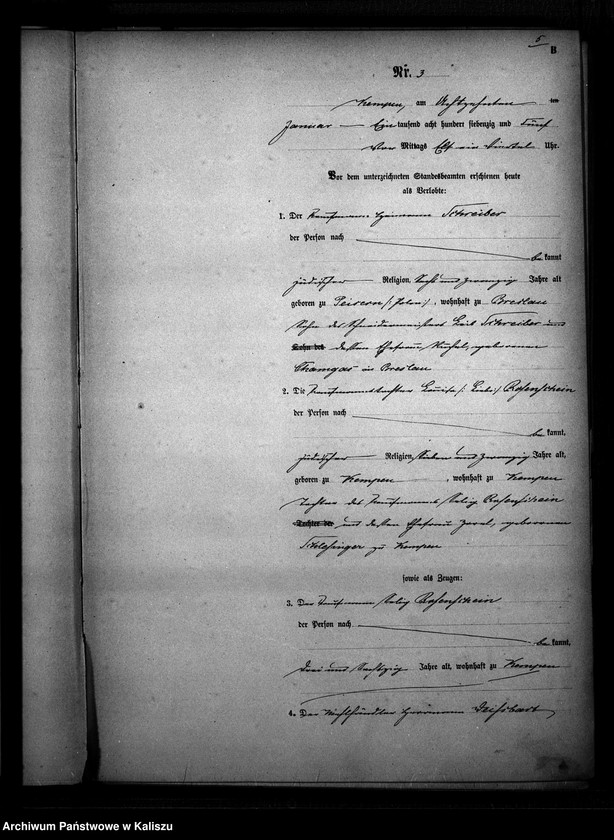 5
B
Nr. 3
Kempen, am Achtzehnten ten
Januar Ein tausend acht hundert siebenzig und Fünf
Vor Mittags Elf ein Viertel Uhr.
Vor dem unterzeichneten Standesbeamten erschienen heute
als Verlobte:
1. Der Kaufmann Herrmann Schreiber
der Person nach
be kannt
jüdischer Religion, Sechs und zwanzig Jahre alt
geboren zu Peisern (: Polen :), wohnhaft zu Breslau
Sohn des Schneidermeisters Schreiber und
Sohn des dessen Ehefrau geborenen
in Breslau
2. Die Kaufmannstochter Rosenschein
der Person nach
be kannt,
jüdischer Religion, Sieben und zwanzig Jahre alt,
geboren zu Kempen, wohnhaft zu Kempen
Tochter des Kaufmanns Selig Rosenschein
Tochter des und dessen Ehefrau geborenen
Schlesinger zu Kempen
sowie als Zeugen:
3. Der Kaufmann Selig Rosenschein
der Person nach
be kannt,
Drei und Sechszig Jahre alt, wohnhaft zu Kempen
4. Der Herrmann
Archiwum Państwowe w Kaliszu